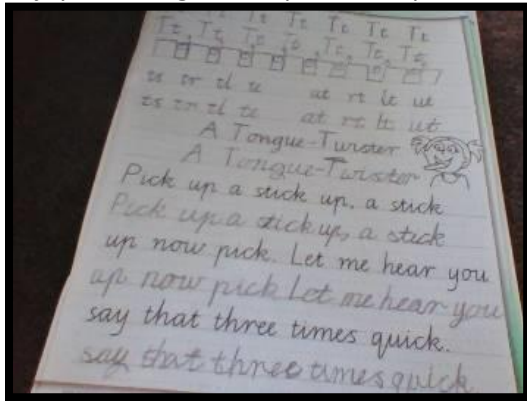 Tt Tt Tt Tt
Tt Tt Tt Tt Tt Tt Tt
ts tr tl te at rt lt ut
ts tr tl te at rt lt ut
A Tongue-Twister
A Tongue-Twister
Pick up a stick up, a stick
Pick up a stick up, a stick
up now pick. Let me hear you
up now pick Let me hear you
say that three times quick.
say that three times quick